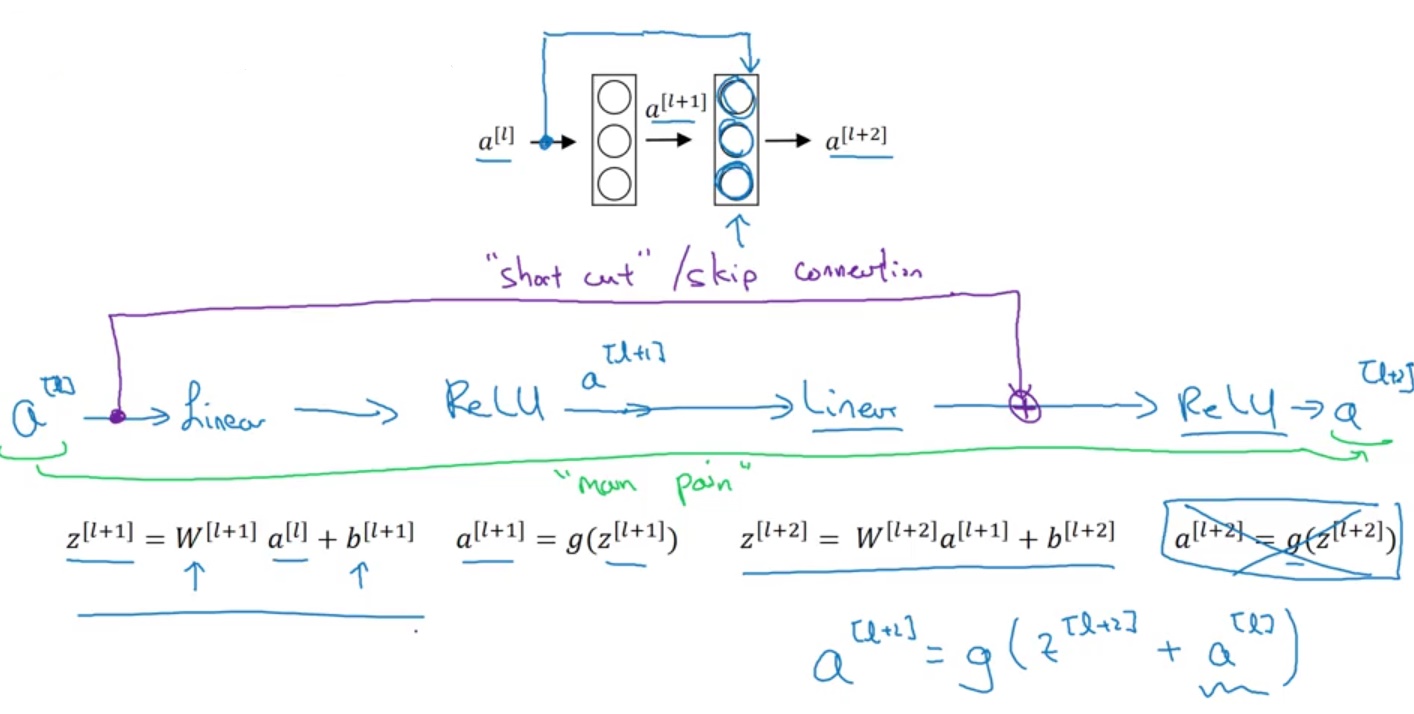 a^[l] a^[l+1] a^[l+2]
"short cut" / skip connection
a^[l] → Linear → ReLU a^[l+1] → Linear → ⊕ → ReLU → a^[l+2]
"main path"
z^[l+1] = W^[l+1] a^[l] + b^[l+1] a^[l+1] = g(z^[l+1]) z^[l+2] = W^[l+2]a^[l+1] + b^[l+2] a^[l+2] = g(z^[l+2])
a^[l+2] = g(z^[l+2] + a^[l])